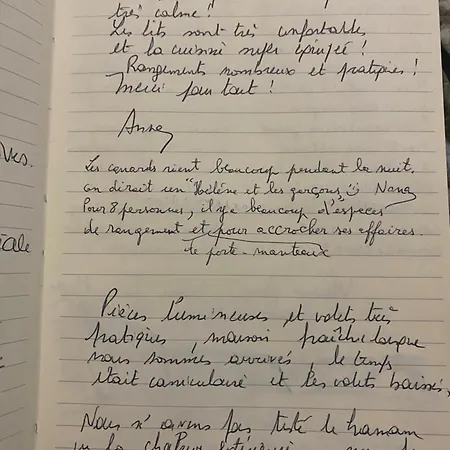 très calme !
Les lits sont très confortables
et la cuisine super équipée !
Rangements nombreux et pratiques !
Merci pour tout !
Anna
Les canards rient beaucoup pendant la nuit.
on dirait un "Hélène et les garçons" Nana
Pour 8 personnes, il y a beaucoup d'espaces
de rangement et pour accrocher ses affaires.
te porte-manteaux
Pièces lumineuses et volets très
pratiques, maison fraîche lorsque
nous sommes arrivés, le temps
était caniculaire et les volets baissés,
Nous n'avons pas testé le hamam
vu la chaleur extérieure
ves.
iale